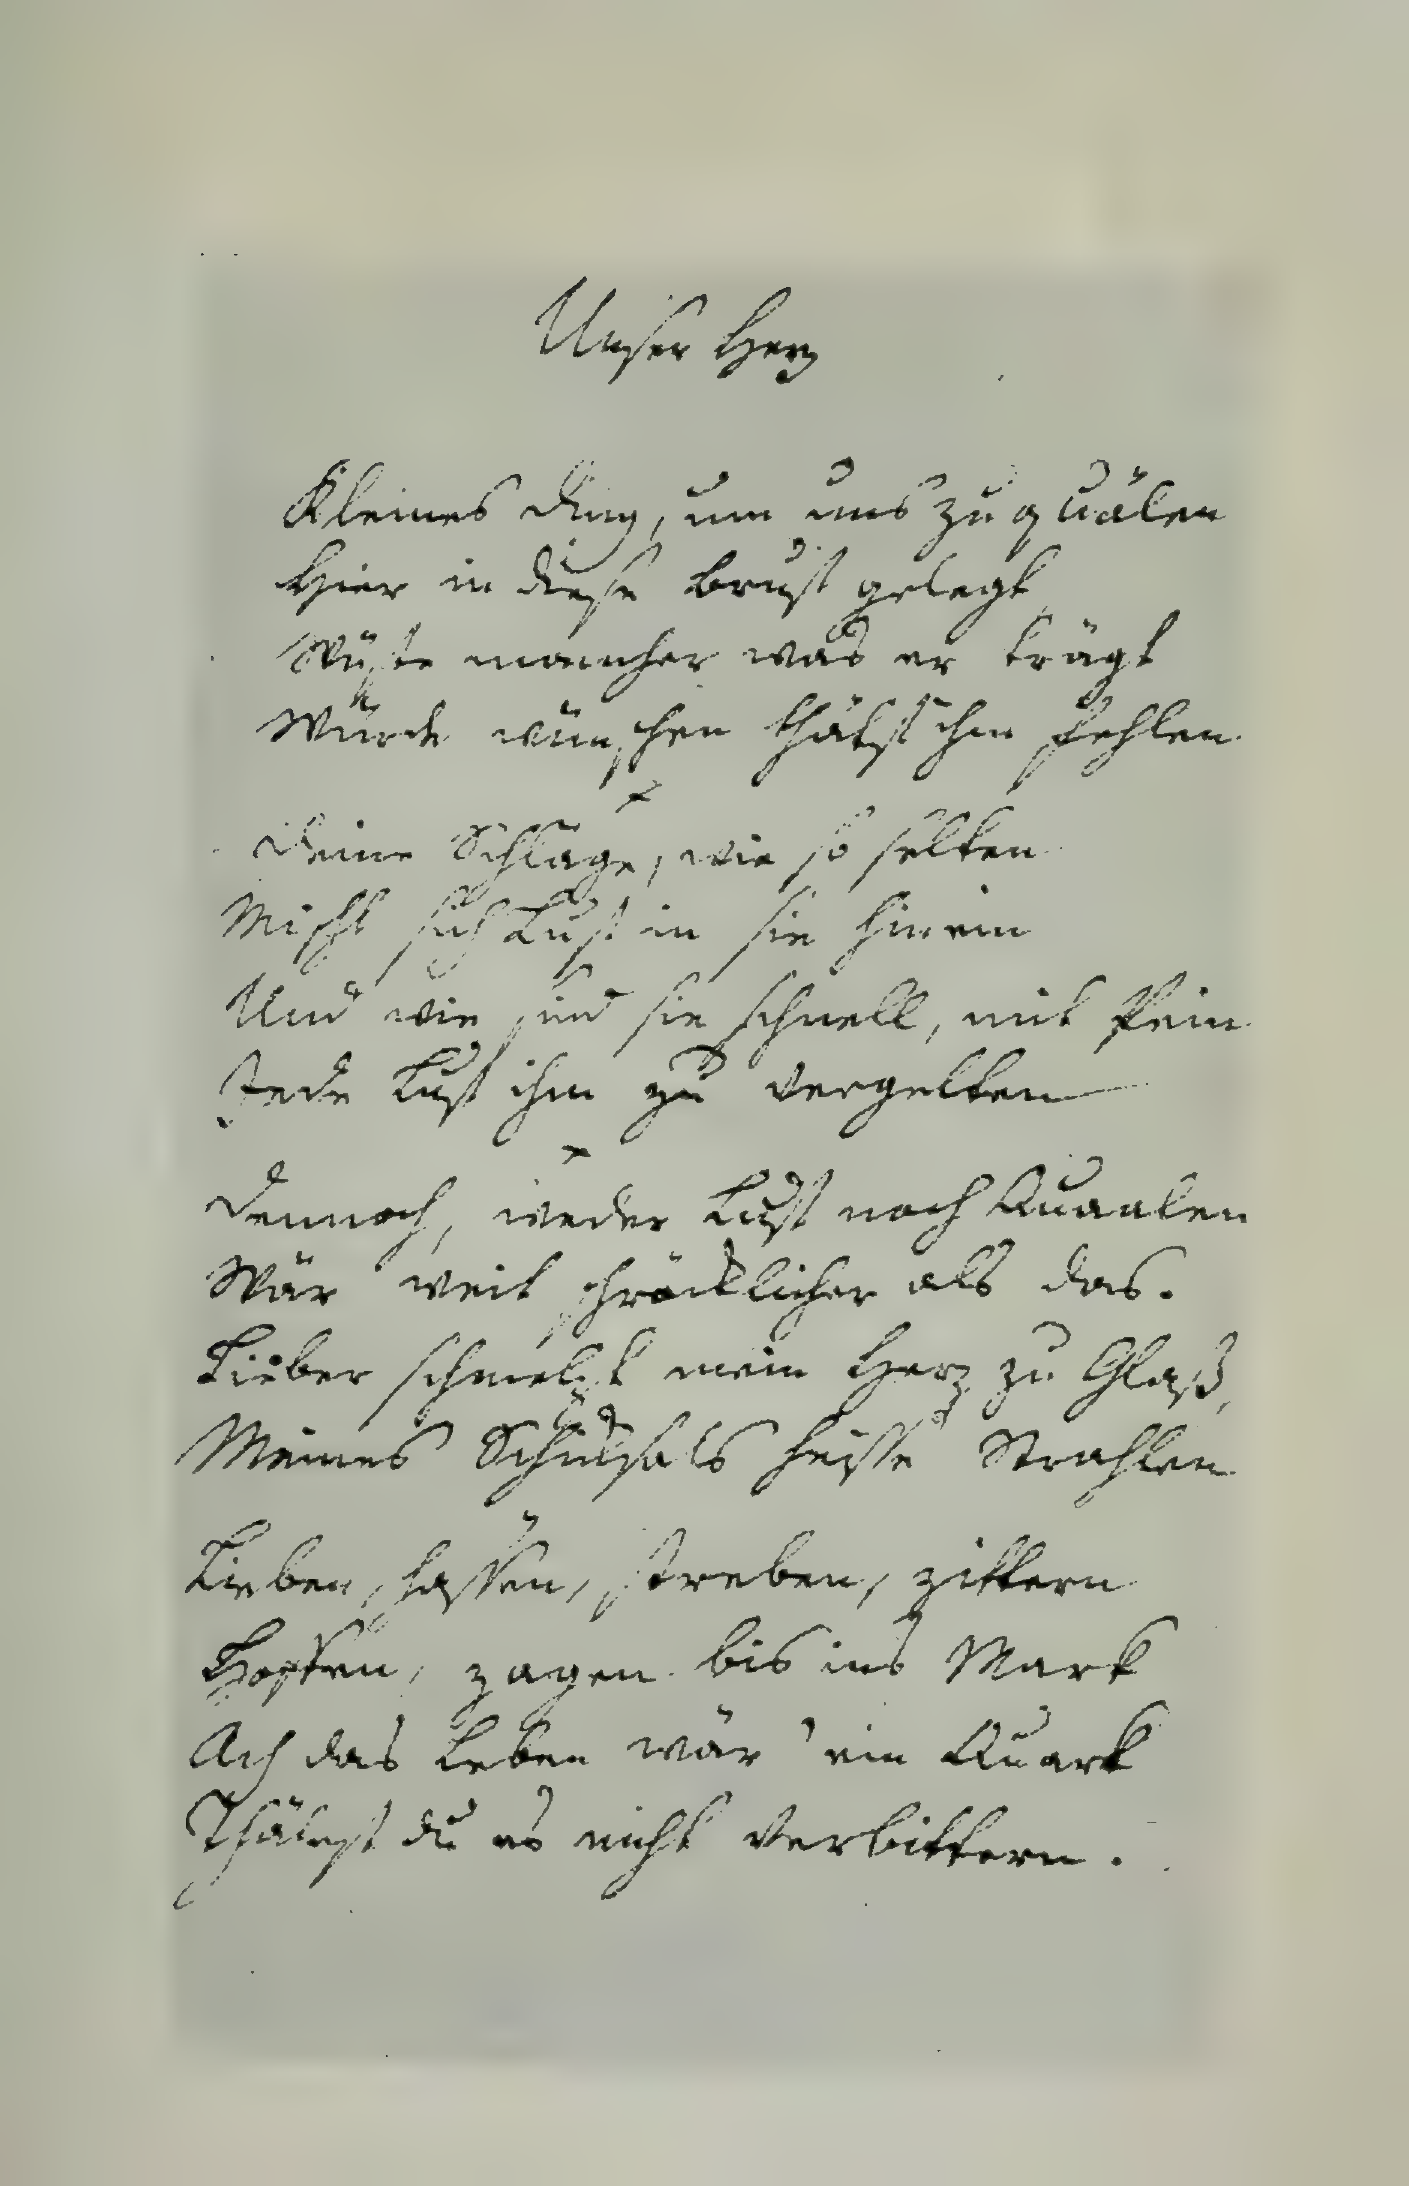 Unser Herz
Kleines Ding, um uns zu quälen
Hier in diese Brust gelegt
Wüste mancher was er trägt
Würde wünschen thätst ihm fehlen
Deine Schläge, wie so selten
Mischt sich Lust in sie hinein
Und wie sind sie schnell, mit Pein
Jede Lust ihm zu vergelten
Dennoch, weder Lust noch Quaalen
Wär weit schröcklicher als das.
Lieber schmelzt mein Herz zu Glaß,
Meines Schicksals heisse Strahlen
Lieben, hassen, streben, zittern
Hoffen, zagen bis ins Mark
Ach das Leben wär' ein Quark
Thätest du es nicht verbittern.